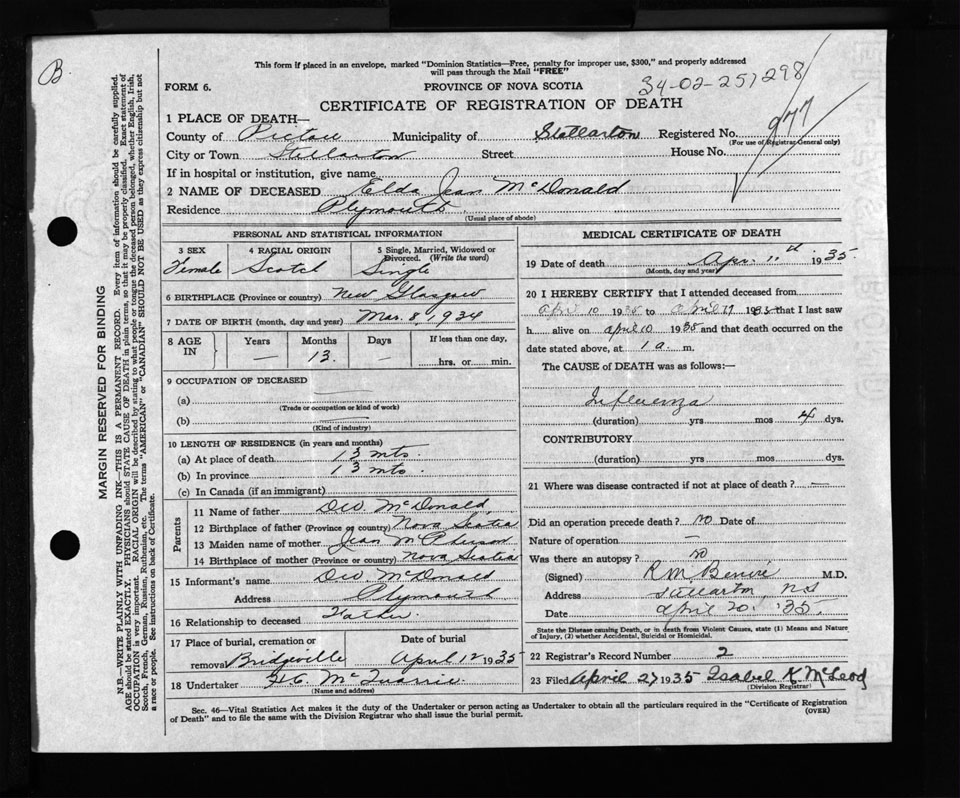 B
This form if placed in an envelope, marked "Dominion Statistics—Free, penalty for improper use, $300," and properly addressed
will pass through the Mail "FREE"
FORM 6.
PROVINCE OF NOVA SCOTIA
34-02-251298
CERTIFICATE OF REGISTRATION OF DEATH
1 PLACE OF DEATH—
County of Pictou Municipality of Stellarton Registered No. 977
(For use of Registrar General only)
City or Town Stellarton Street House No.
If in hospital or institution, give name
2 NAME OF DECEASED Elda Jean McDonald
Residence Plymouth
(Usual place of abode)
PERSONAL AND STATISTICAL INFORMATION
3 SEX 4 RACIAL ORIGIN 5 Single, Married, Widowed or
Divorced. (Write the word)
Female Scotch Single
6 BIRTHPLACE (Province or country) New Glasgow
7 DATE OF BIRTH (month, day and year) Mar. 8, 1934
8 AGE IN Years Months Days If less than one day,
— 13 — hrs. or min.
9 OCCUPATION OF DECEASED
(a) —
(Trade or occupation or kind of work)
(b)
(Kind of industry)
10 LENGTH OF RESIDENCE (in years and months)
(a) At place of death 13 mts.
(b) In province 13 mts.
(c) In Canada (if an immigrant)
Parents
11 Name of father McDonald
12 Birthplace of father (Province or country) Nova Scotia
13 Maiden name of mother Jean McPherson
14 Birthplace of mother (Province or country) Nova Scotia
15 Informant's name McDonald
Address Plymouth
16 Relationship to deceased Father
17 Place of burial, cremation or Date of burial
removal Bridgeville April 12 1935
18 Undertaker McQuarrie
(Name and address)
MEDICAL CERTIFICATE OF DEATH
19 Date of death Apr. 11th 1935
(Month, day and year)
20 I HEREBY CERTIFY that I attended deceased from
Apr 10 1935 to April 11 1935 that I last saw
h alive on April 10 1935 and that death occurred on the
date stated above, at 1 a. m.
The CAUSE of DEATH was as follows:—
Influenza
(duration) yrs mos 4 dys.
CONTRIBUTORY
(duration) yrs mos dys.
21 Where was disease contracted if not at place of death? —
Did an operation precede death? no Date of
Nature of operation —
Was there an autopsy? no
(Signed) R M Benvie M.D.
Address Stellarton, N S
Date April 20. '35
State the Disease causing Death, or in death from Violent Causes, state (1) Means and Nature
of Injury, (2) whether Accidental, Suicidal or Homicidal.
22 Registrar's Record Number 2
23 Filed April 27 1935 Isabel K. McLeod
(Division Registrar)
Sec. 46—Vital Statistics Act makes it the duty of the Undertaker or person acting as Undertaker to obtain all the particulars required in the "Certificate of Registration
of Death" and to file the same with the Division Registrar who shall issue the burial permit.
(OVER)
MARGIN RESERVED FOR BINDING
N.B.—WRITE PLAINLY WITH UNFADING INK—THIS IS A PERMANENT RECORD. Every item of information should be carefully supplied.
AGE should be stated EXACTLY. PHYSICIANS should STATE CAUSE OF DEATH in plain terms, so that it may be properly classified. Exact statement of
OCCUPATION is very important. RACIAL ORIGIN will be described by stating to what people or tongue the deceased person belonged, whether English, Irish,
Scotch, French, German, Russian, Ruthenian, etc. The terms "AMERICAN" or "CANADIAN" SHOULD NOT BE USED as they express citizenship but not
a race or people. See instructions on back of Certificate.